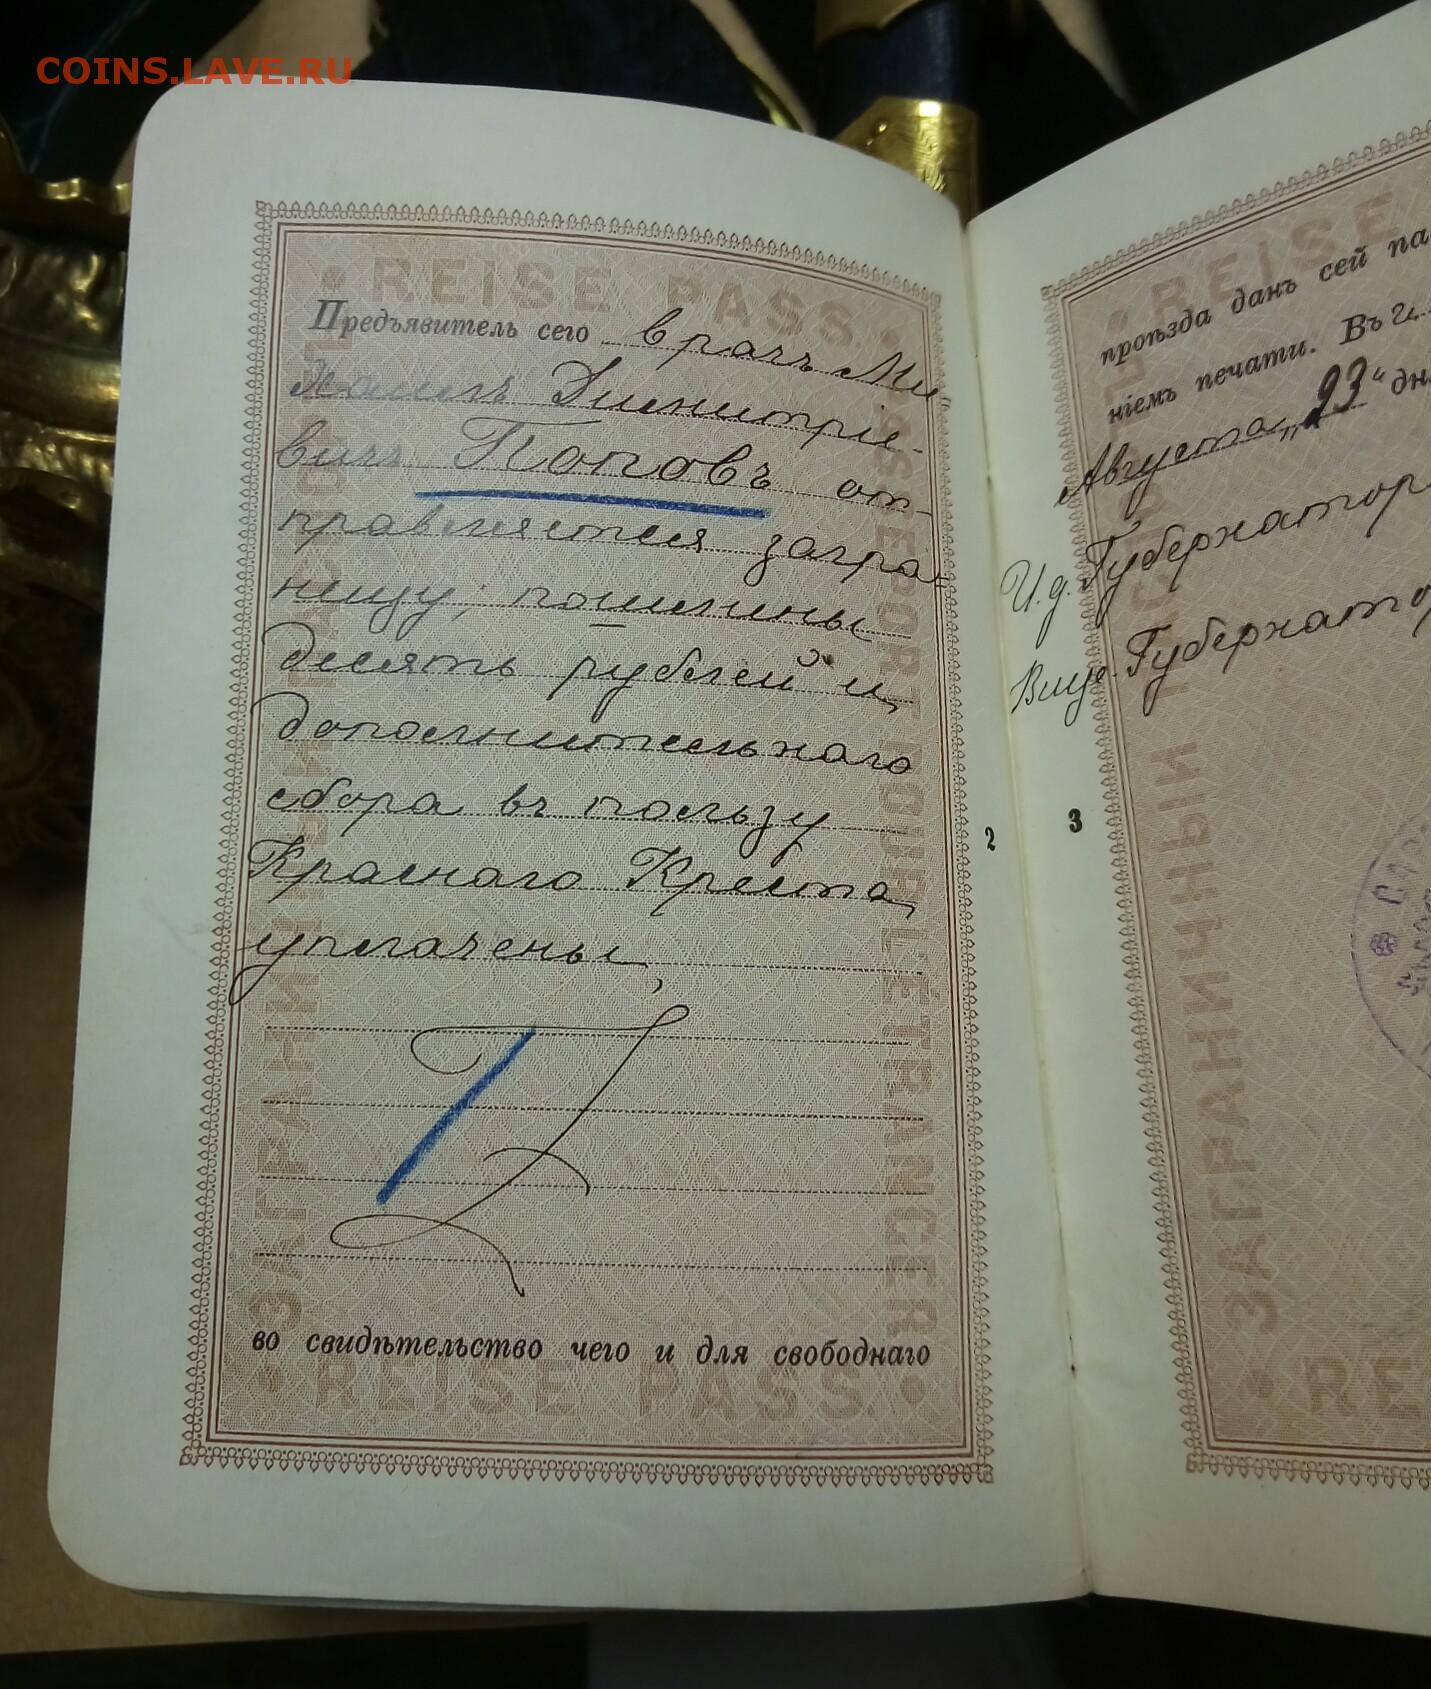 COINS.LAVE.RU
• REISE PASS. •
Предъявитель сего врачъ Ми
хаилъ Димитріе-
вичъ Поповъ от-
правляется загра-
ницу; пошлины
десять рублей и
дополнительнаго
сбора въ пользу
Краснаго Креста
уплачены,
во свидѣтельство чего и для свободнаго
• REISE PASS. •
ЗАГРАНИЧНЫЙ ПАСПОРТ
PASSEPORT POUR L'ÉTRANGER
2
• REISE
проѣзда данъ сей па
ніемъ печати. Въ г.
Августа „23“ дн
И.д. Губернатор
Вице-Губернатор
3
ЗАГРАНИЧНЫЙ ПАСПО
• RE